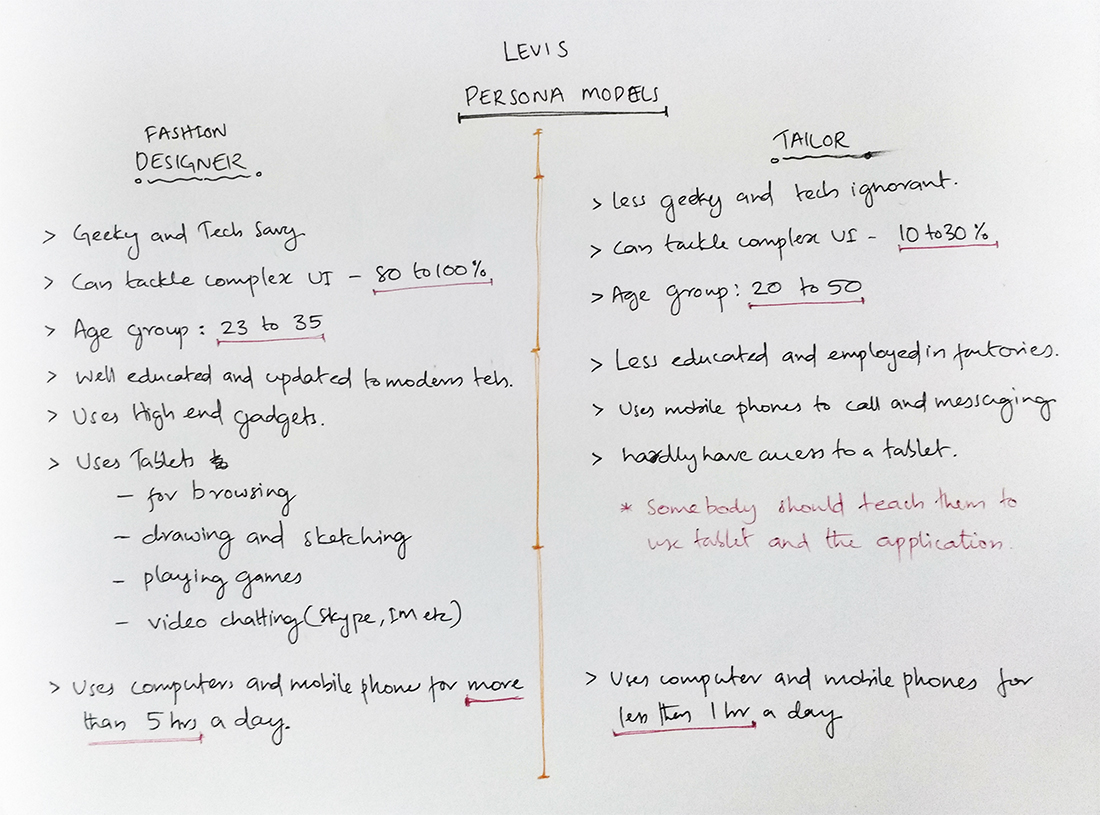 LEVIS
PERSONA MODELS
FASHION
DESIGNER
> Geeky and Tech Savy
> Can tackle complex UI - 80 to 100%
> Age group: 23 to 35
> Well educated and updated to modern teh.
> Uses High end gadgets.
> Uses Tablets
- for browsing
- drawing and sketching
- playing games
- video chatting (Skype, IM etc)
> Uses computers and mobile phone for more
than 5 hrs a day.
TAILOR
> Less geeky and tech ignorant.
> Can tackle complex UI - 10 to 30%
> Age group: 20 to 50
> Less educated and employed in factories.
> Uses mobile phones to call and messaging
> hardly have access to a tablet.
* Somebody should teach them to
use tablet and the application.
> Uses computer and mobile phones for
less then 1 hr a day